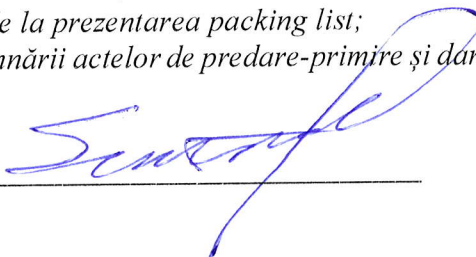 la prezentarea packing list;
actelor de predare-primire și